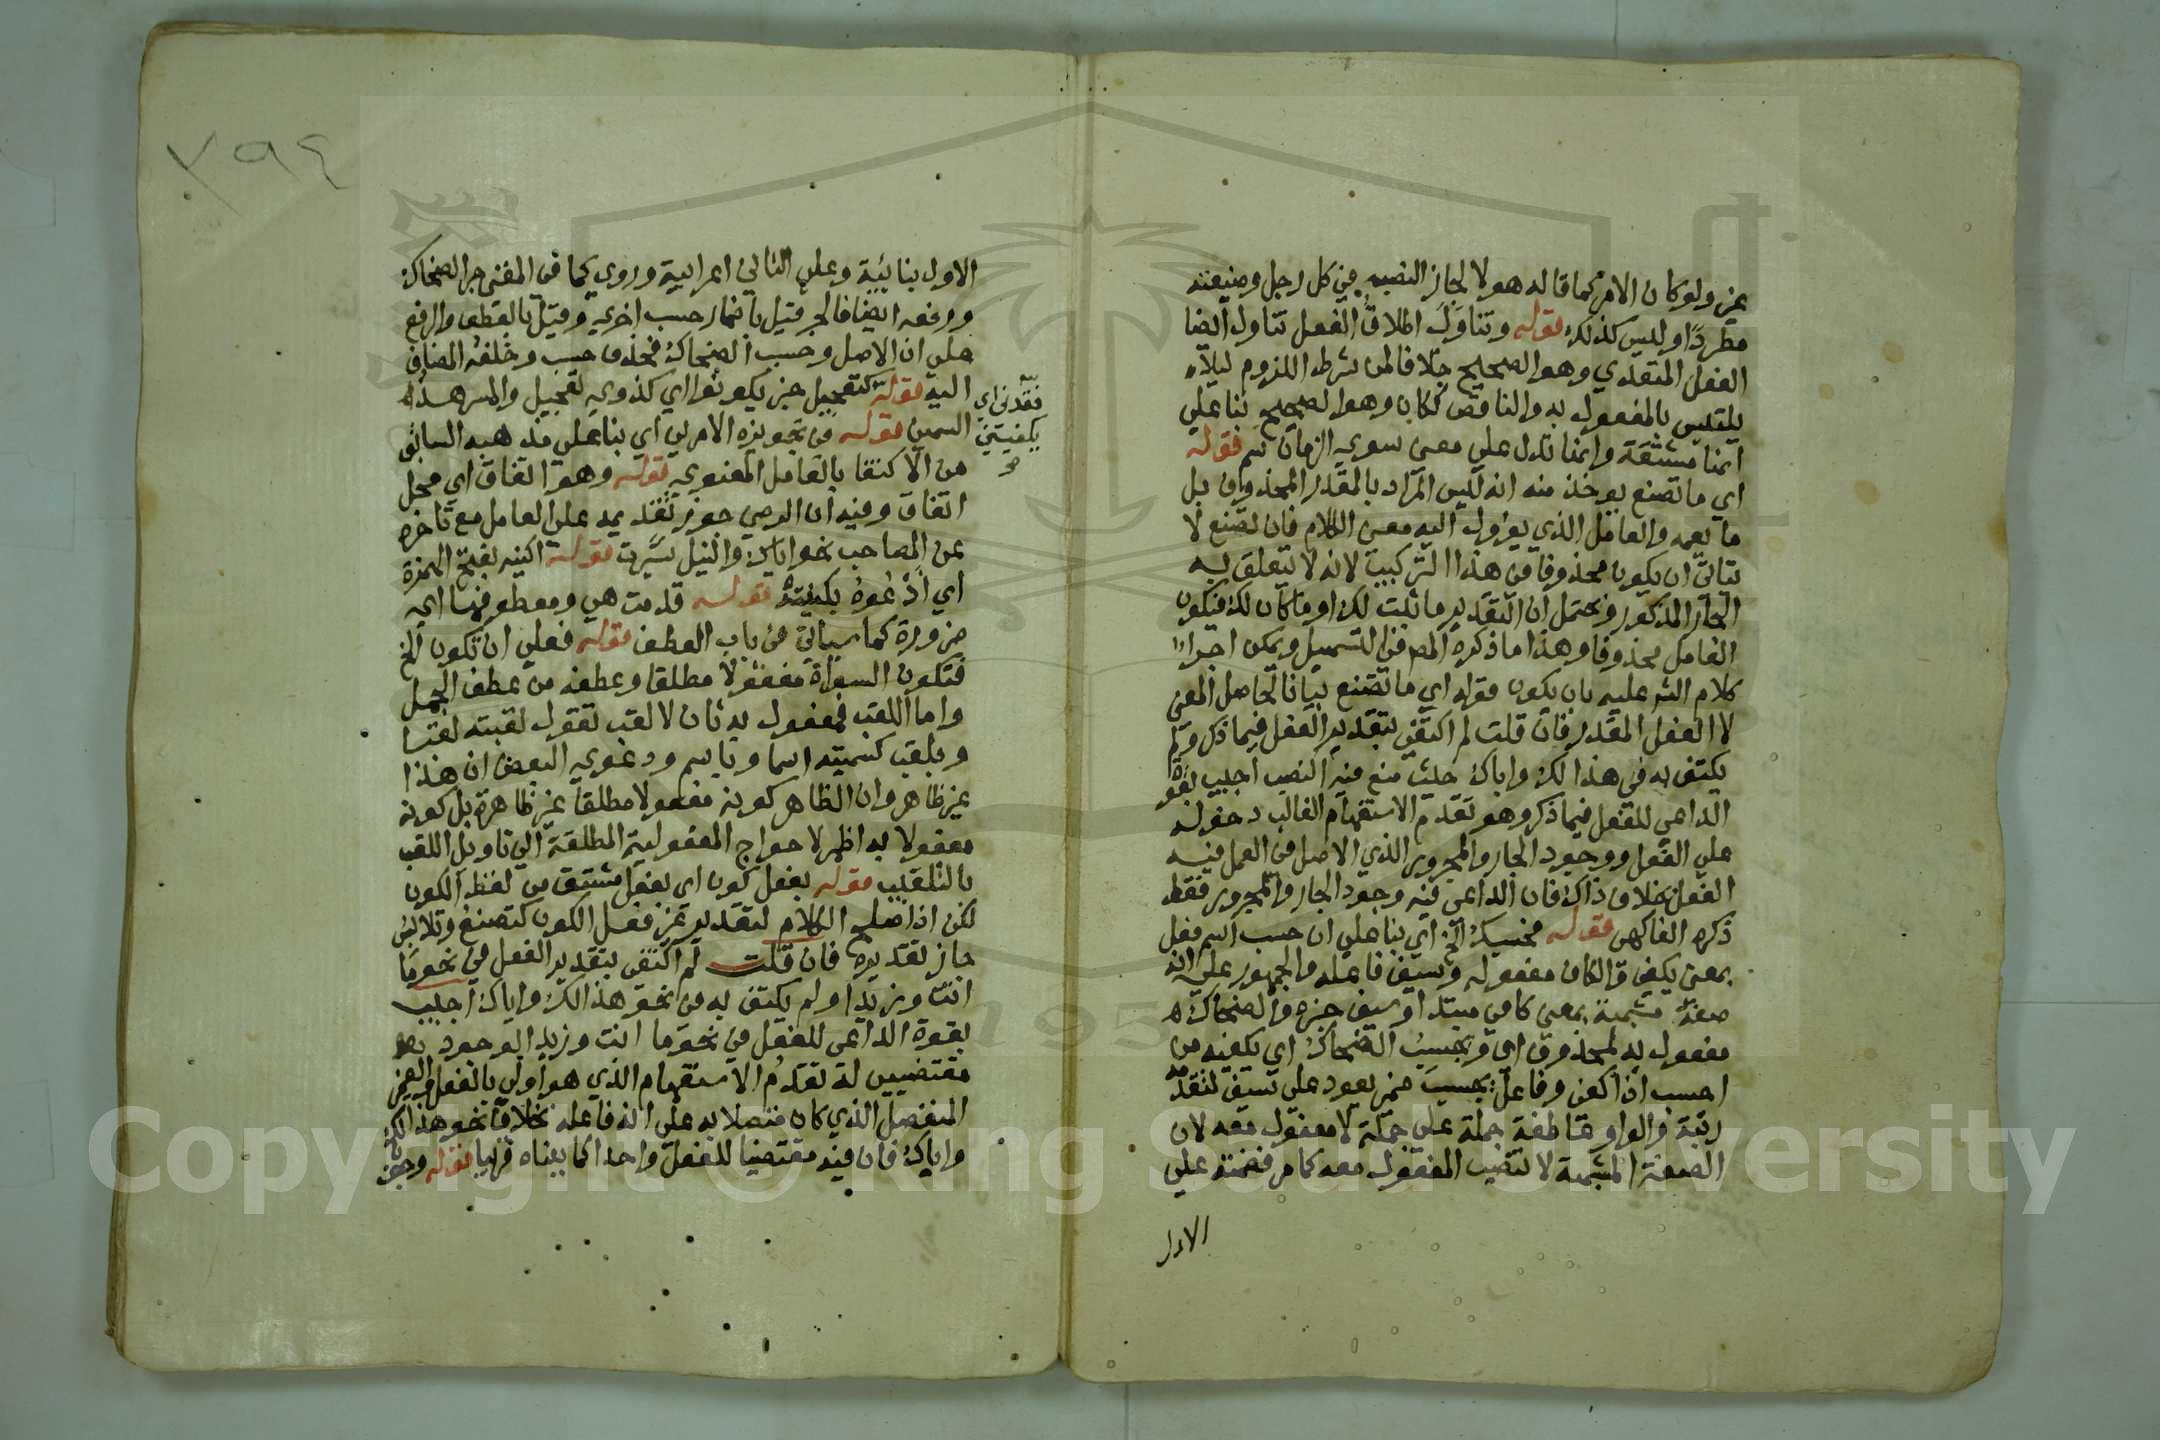 غير ولو كان الامر كما قاله هو لا لجاز النصب في كل رجل وضيعته
مطردا وليس كذلك قوله وتناول اطلاق الفعل تناول ايضا
الفعل المتعدي وهو الصحيح خلافا لمن شرط اللزوم ليلا
يلتبس بالمفعول به والناقص ككان وهو الصحيح بنا على
انها مشتقة وانها تدل على معنى سوى الزمان ثم قوله
اي ما تصنع يوخذ منه انه ليس المراد بالمقدر المحذوف بل
ما يعمه والعامل الذي يؤول اليه معنى الكلام فان تصنع لا
يتاتى ان يكون محذوفا في هذا التركيب لانه لا يتعلق به
الجار المذكور ويحتمل ان التقدير ما ثبت لك او ما كان لك فيكون
العامل محذوفا وهذا ما ذكره المص في التسهيل ويمكن اجراء
كلام الشر عليه بان يكون قوله اي ما تصنع بيانا لحاصل المعنى
لا الفعل المقدر فان قلت لم اكتفى بتقدير الفعل فيما ذكر ولم
يكتف به في هذا لك واباك حيث منع فيه النصب اجيب بقوة
الداعي للفعل فيما ذكر وهو تقدم الاستفهام الغالب دخوله
على الفعل ووجود الجار والمجرور الذي الاصل في العمل فيه
الفعل بخلاف ذاك فان الداعي فيه وجود الجار والمجرور فقط
ذكره الفاكهي قوله فحسبك الخ اي بنا على ان حسب اسم فعل
بمعنى يكفي والكاف مفعوله وسيف فاعله والجمهور على انه
صفة مشبهة بمعنى كافي مبتدا وسيف خبره والضحاك
مفعول به لمحذوف اي ويحسب الضحاك اي يكفيه من
احسب اذا كفى وفاعل يحسب ضمير يعود على سيف لتقدمه
رتبة والواو عاطفة جملة على جملة لا مفعول معه لان
الصفة المشبهة لا تنصب المفعول معه كما مر فضمته على
الاول
٧٩٤
الاول بنائية وعلى الثاني اعرابية وروي كما في المغنى جر الضحاك
ورفعه ايضا فالجر قيل باضمار حسب اخرى وقيل بالعطف والرفع
على ان الاصل وحسب الضحاك فحذف حسب وخلفه المضاف
اليه قوله كتعجيل خبر يكونوا اي كذوي تعجيل والسرهد
السمين قوله في تجويزه الامرين اي بنا على مذهبه السابق
من الاكتفا بالعامل المعنوي قوله وهو اتفاق اي محل
اتفاق وفيه ان الرضي جوز تقديمه على العامل مع تاخره
عن المصاحب نحو اياك والنيل سرت قوله اكنيه بفتح الهمزة
اي ادعوه بكنيته قوله قدمت هي ومعطوفها اي
ضرورة كما سياتي في باب العطف قوله فعلى ان تكون الخ
فتكون السواة مفعولا مطلقا وعطفه من عطف الجمل
واما اللقب فمفعول به ثان لالقب تقول لقبته لقبا
وبلقب كسميته اسما وباسم ودعوى البعض ان هذا
غير ظاهر وان الظاهر كونه مفعولا مطلقا غير ظاهرة بل كونه
مفعولا به اظهر لاحواج المفعولية المطلقة الى تاويل اللقب
بالتلقيب قوله بفعل كون اي بفعل مشتق من لفظ الكون
لكن اذا صلح الكلام لتقدير غير فعل الكون كتصنع وتلابس
جاز تقديره فان قلت لم اكتفى بتقدير الفعل في نحو ما
انت وزيدا ولم يكتف به في نحو هذا لك واياك اجيب
بقوة الداعي للفعل في نحو ما انت وزيدا لوجود
مقتضيين له تقدم الاستفهام الذي هو اولى بالفعل والضمير
المنفصل الذي كان متصلا به على انه فاعله بخلاف نحو هذا لك
واياك فان فيه مقتضيا للفعل واحدا كما بيناه قريبا قوله وجوبا
نقدني اي
يكفيني